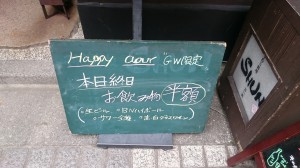 Happy aour GW限定
本日終日
お飲み物 半額
(・生ビール ・日Nハイボール
・サワー全種 ・赤白グラスワイン)
SHUN